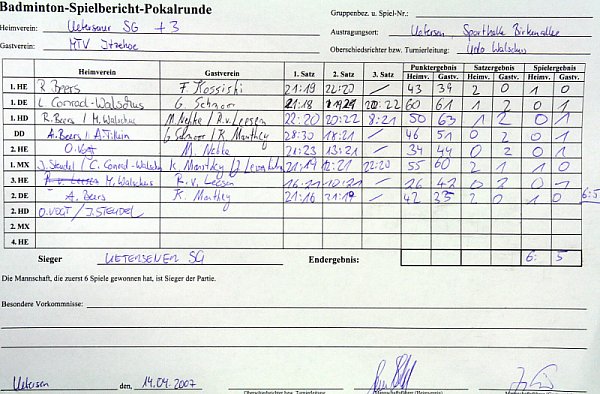 Badminton-Spielbericht-Pokalrunde
Gruppenbez. u. Spiel-Nr.:
Heimverein: Uetersener SG +3
Austragungsort: Uetersen, Sporthalle Birkenallee
Gastverein: MTV Itzehoe
Oberschiedsrichter bzw. Turnierleitung: Udo Walschus
Punktergebnis Satzergebnis Spielergebnis
Heimverein Gastverein 1. Satz 2. Satz 3. Satz Heimv. Gastv. Heimv. Gastv. Heimv. Gastv.
1. HE R. Beers F. Kossiski 21:19 22:20 / 43 39 2 0 1 0
1. DE G. Schnoor 20:22 60 61 1 2 0 1
1. HD R. Beers / M. Walschus M. Nehke / R. v. Leesen 22:20 20:22 8:21 50 63 1 2 0 1
DD A. Beers / G. Schnoor / K. Manthey 28:30 18:21 / 46 51 0 2 0 1
2. HE O. Vogt M. Nehke 21:23 13:21 / 34 44 0 2 0 1
1. MX J. Stendel / C. Conrad-Walschus K. Manthey 21:19 12:21 22:20 55 60 2 1 1 0
3. HE M. Walschus R. v. Leesen 16:21 10:21 / 26 42 0 2 0 1
2. DE A. Beers K. Manthey 21:16 21:19 / 42 35 2 0 1 0 6:5
2. HD O. VOGT / J. STENDEL
2. MX
4. HE
Sieger UETERSENER SG Endergebnis: 6: 5
Die Mannschaft, die zuerst 6 Spiele gewonnen hat, ist Sieger der Partie.
Besondere Vorkommnisse:
Uetersen den, 14.04.2007
Oberschiedsrichter bzw. Turnierleitung